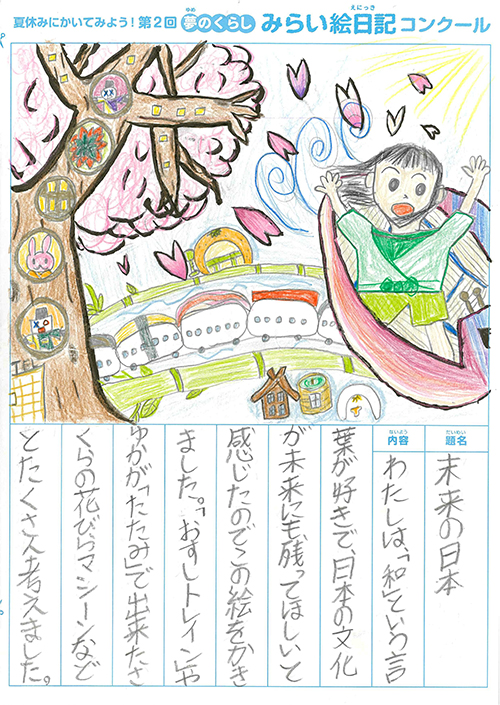 夏休みにかいてみよう！第2回 夢のくらし みらい絵日記コンクール
ゆめ
えにっき
TEL
だいめい
題名
未来の日本
ないよう
内容
わたしは、「和」という言
葉が好きで、日本の文化
が未来にも、残ってほしいと
感じたのでこの絵をかき
ました。「おすしトレイン」や
ゆかが「たたみ」で出来たさ
くらの花びらマシーンなど
とたくさん考えました。